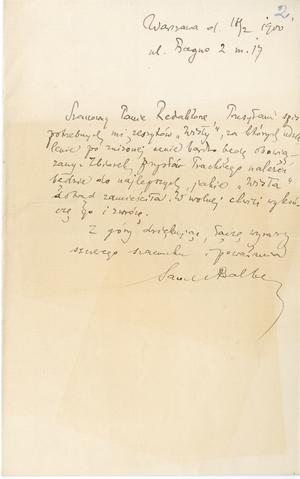 2.
Warszawa d. 18/2 1900
ul. Bagno 2 m. 17
Szanowny Panie Redaktorze, Przesyłam spis
potrzebnych mi zeszytów „Wisły", za których udzie
lenie po zniżonej cenie bardzo będę obowią
zany. Zbiorek należeć
będzie do najlepszych, jakie „Wisła"
dotąd zamieściła. W wolnej chwili wykoń
czę go i zwrócę.
Z góry dziękując, łączę wyrazy
szczerego szacunku i poważania